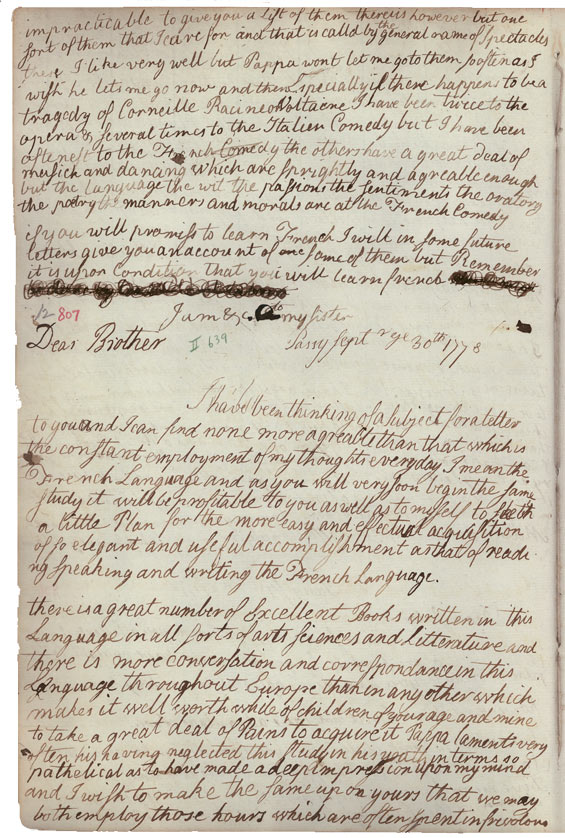 impracticable to give you a List of them there is however but one
sort of them that I care for and that is calld by the general name of Spectacles
these I like very well but Pappa wont let me go to them so often as I
wish he lets me go now and then specially if there happens to be a
tragedy of Corneille Racine or Voltaene I have been twice to the
opera & several times to the Italien Comedy but I have been
aftenest to the French Comedy the others have a great deal of
musick and dancing which are sprightly and agreable enough
but the language the wit the passions the sentiments the oratory
the poetry the manners and morals are at the French Comedy
if you will promiss to learn French I will in some future
letters give you an account of some of them but Remember
it is upon Condition that you will learn french
I am &c. to my sister
807
II 639
Dear Brother Passy Sept r ye 30th 1778
I have been thinking of a subject for a letter
to you and I can find none more agreable than that which is
the constant employment of my thoughts every day I mean the
French Language and as you will very soon begin the same
study it will be profitable to you as well as to myself to
a little Plan for the more easy and effectual acquisition
of so elegant and useful accomplishment as that of readi
ng speaking and writing the French Language.
there is a great number of Excellent Books written in this
Language in all sorts of arts sciences and Litterature and
there is more conversation and correspondance in this
Language throughout Europe than in any other which
makes it well worth while of children of your age and mine
to take a great deal of Pains to acquire it Pappa laments very
often his having neglected this study in his youth in terms so
pathetical as to have made a deep impression upon my mind
and I wish to make the same upon yours that we may
both employ those hours which are often spent in frivolous